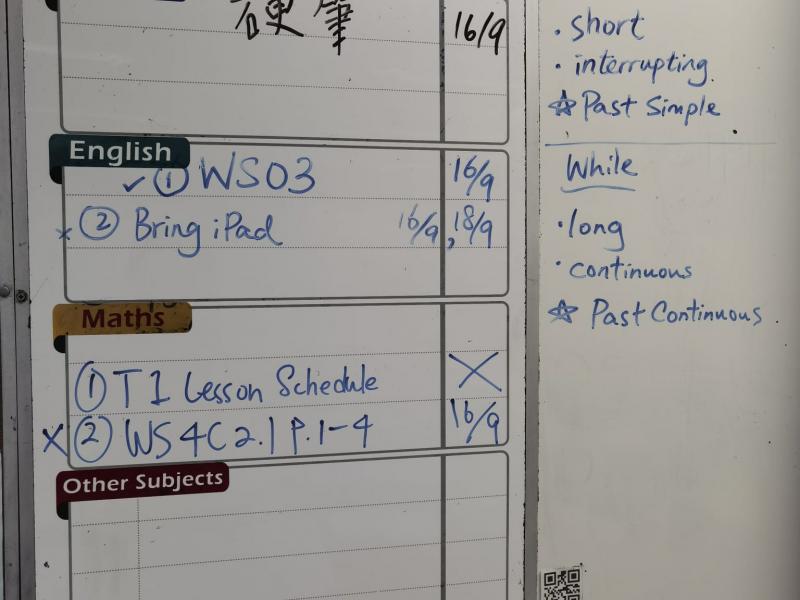 硬筆 16/9
English
✓ ① WS03 16/9
× ② Bring iPad 16/9, 18/9
Maths
① T1 Lesson Schedule ×
× ② WS 4C 2.1 P.1-4 16/9
Other Subjects
· short
· interrupting
☆ Past Simple
While
· long
· continuous
☆ Past Continuous